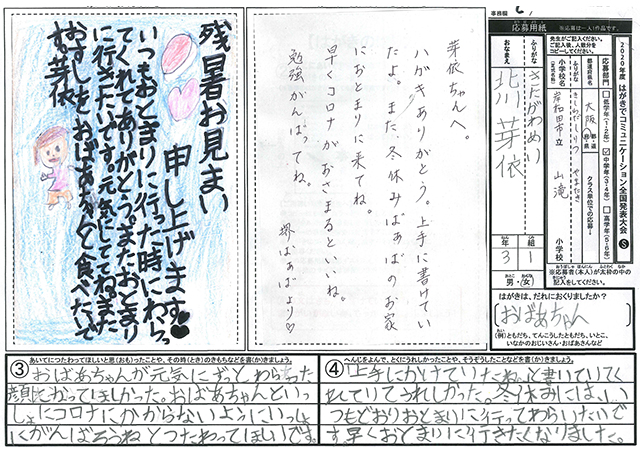 残暑お見まい
申し上げます♥
いつもおとまりに行った時にわらっ
てくれてありがとう。またおとまり
に行きたいです。元気にしててねまた
おすしを、おばあちゃんと食べたいで
す。芽依
芽依ちゃんへ。
ハガキありがとう。上手に書けてい
たよ。また、冬休みばぁばのお家
におとまりに来てね。
早くコロナがおさまるといいね。
勉強がんばってね。
堺ばぁばより♡
事務欄
応募用紙
※応募票は一人1作品です。
2020年度 はがきでコミュニケーション全国発表大会 S
先生がご記入ください。
ご記入後、人数分を
コピーしてください。
応募部門
□低学年(1・2年)
☑中学年(3・4年)
□高学年(5・6年)
都道府県名
大阪
都・道
府・県
クラス単位での応募↓
ふりがな
きしわだしりつ
やまだき
小学校名
岸和田市立
山滝
小学校
ふりがな
きたがわめい
おなまえ
北川 芽依
年 3
組 1
男・女
※応募者(本人)が太枠の中の
記入をしてください。
はがきは、だれにおくりましたか?
おばあちゃん
(例)ともだち、てんこうしたともだち、いとこ、
いなかのおじいさん・おばあさんなど
③
あいてにつたわってほしいと思(おも)ったことや、その時(とき)のきもちなどを書(か)きましょう。
おばあちゃんが元気にずっとわらった
顔にかってほしかった。おばあちゃんといっ
しょにコロナにかからないようにいっしょ
にがんばろうねとつたわってほしいです。
④
へんじをよんで、とくにうれしかったことや、そうぞうしたことなどを書(か)きましょう。
「上手にかけていたね。」と書いていてく
れていてうれしかった。冬休みには、い
つもどおりおとまいに行ってわらいたいで
す。早くおとまいに行きたくなりました。